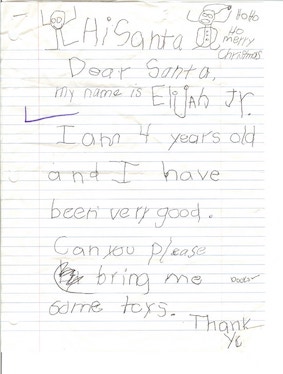 Hi Santa
HoHo
Ho
merry
Christmas
Dear Santa,
my name is Elijah Jr.
I am 4 years old
and I have
been very good.
Can you please
bring me
some toys.
Thank
Yo